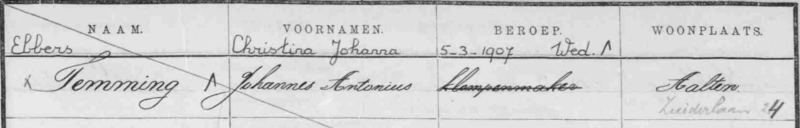 NAAM. VOORNAMEN. BEROEP. WOONPLAATS.
Ebbers Christina Johanna 5-3-1907 Wed. Λ
x Temming Λ Johannes Antonius klompenmaker Aalten
Zuiderlaan 24